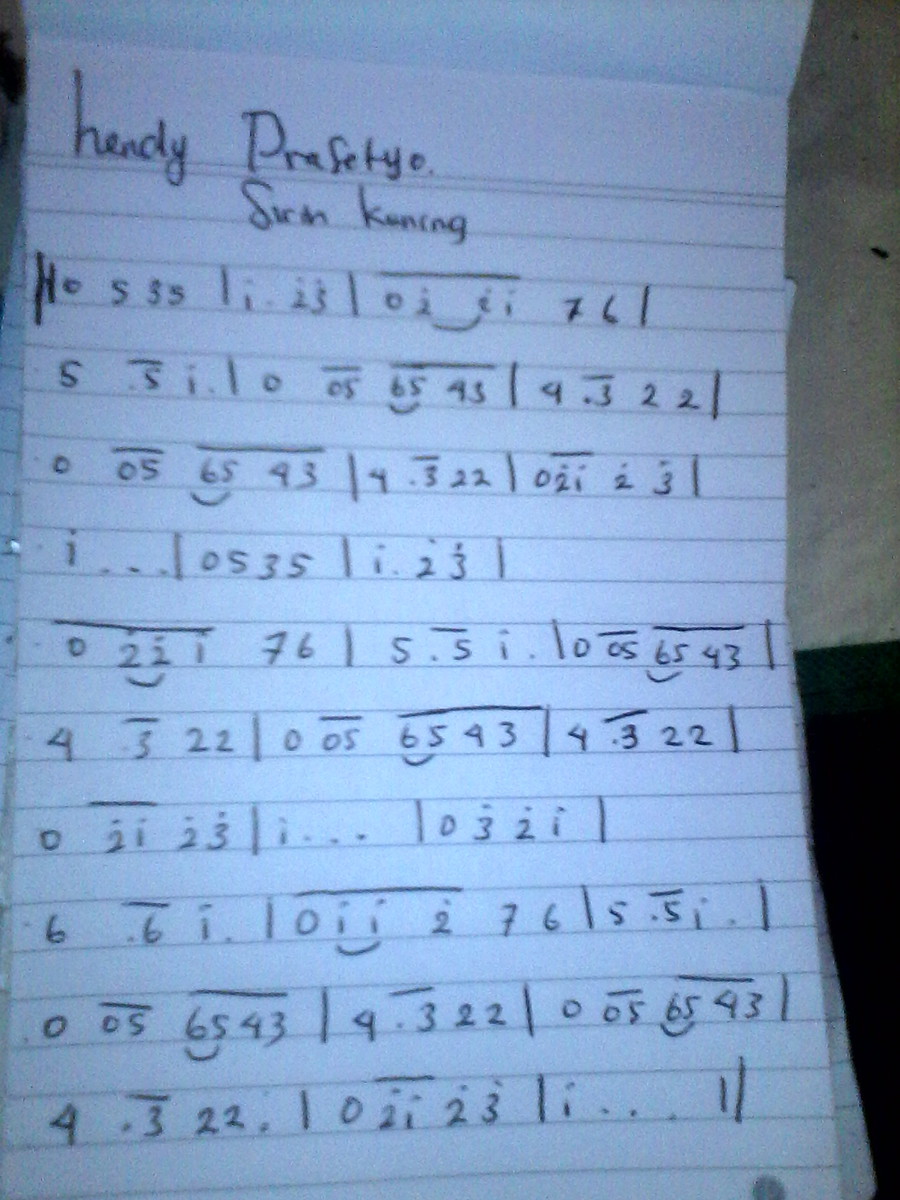 hendy Prasetyo.
Sirih Kuning
||0 5 35 | i̇ . 2̇3̇ | 02̇ 2̇i̇ 7 6 |
5 .5 i̇ . | 0 05 65 43 | 4 .3 2 2 |
0 05 65 43 | 4 .3 22 | 02̇i̇ 2̇ 3̇ |
i̇ . . . | 0535 | i̇ . 2̇ 3̇ |
0 2̇2̇ i̇ 76 | 5 .5 i̇ . | 0 05 65 43 |
4 .3 22 | 0 05 65 43 | 4 .3 22 |
0 2̇i̇ 2̇3̇ | i̇ . . . | 0 3̇ 2̇ i̇ |
6 .6 i̇ . | 0 i̇ i̇ 2̇ 7 6 | 5 .5 i̇ . |
0 05 6543 | 4 .3 22 | 0 05 65 43 |
4 .3 22 . | 0 2̇i̇ 2̇3̇ | i̇ . . . ||